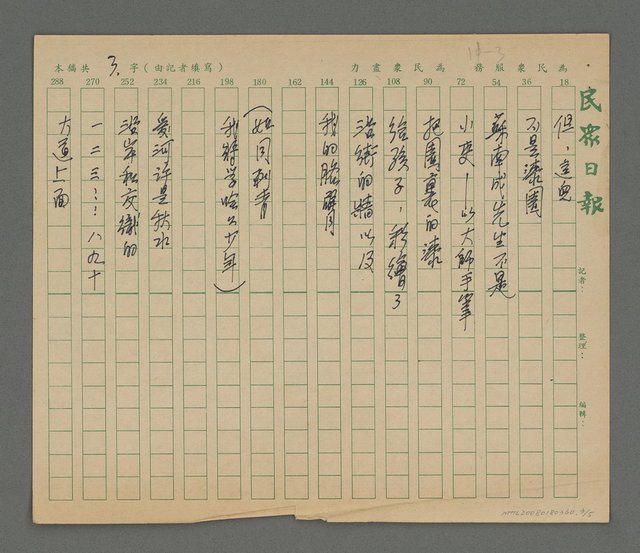 11-3
為民衆服務 為民衆盡力
本稿共 3. 字（由記者填寫）
18 36 54 72 90 108 126 144 162 180 198 216 234 252 270 288
民衆日報
記者：
整理：
編輯：
但，這兒
不是漆園
蘇南成先生不是
小吏—以大師手筆
把園裏的漆
給孩子，彩繪了
沿街的牆以及
我的臂
（如同刺青
我輩 少年）
愛河許是秋水
沿岸 交織的
一二三……八九十
大道上面
NMTL20080180360. 3/5